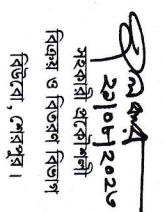 ২১/০৮/২০২৩
সহকারী প্রকৌশলী
বিক্রয় ও বিতরণ বিভাগ
বিউবো, শেরপুর।